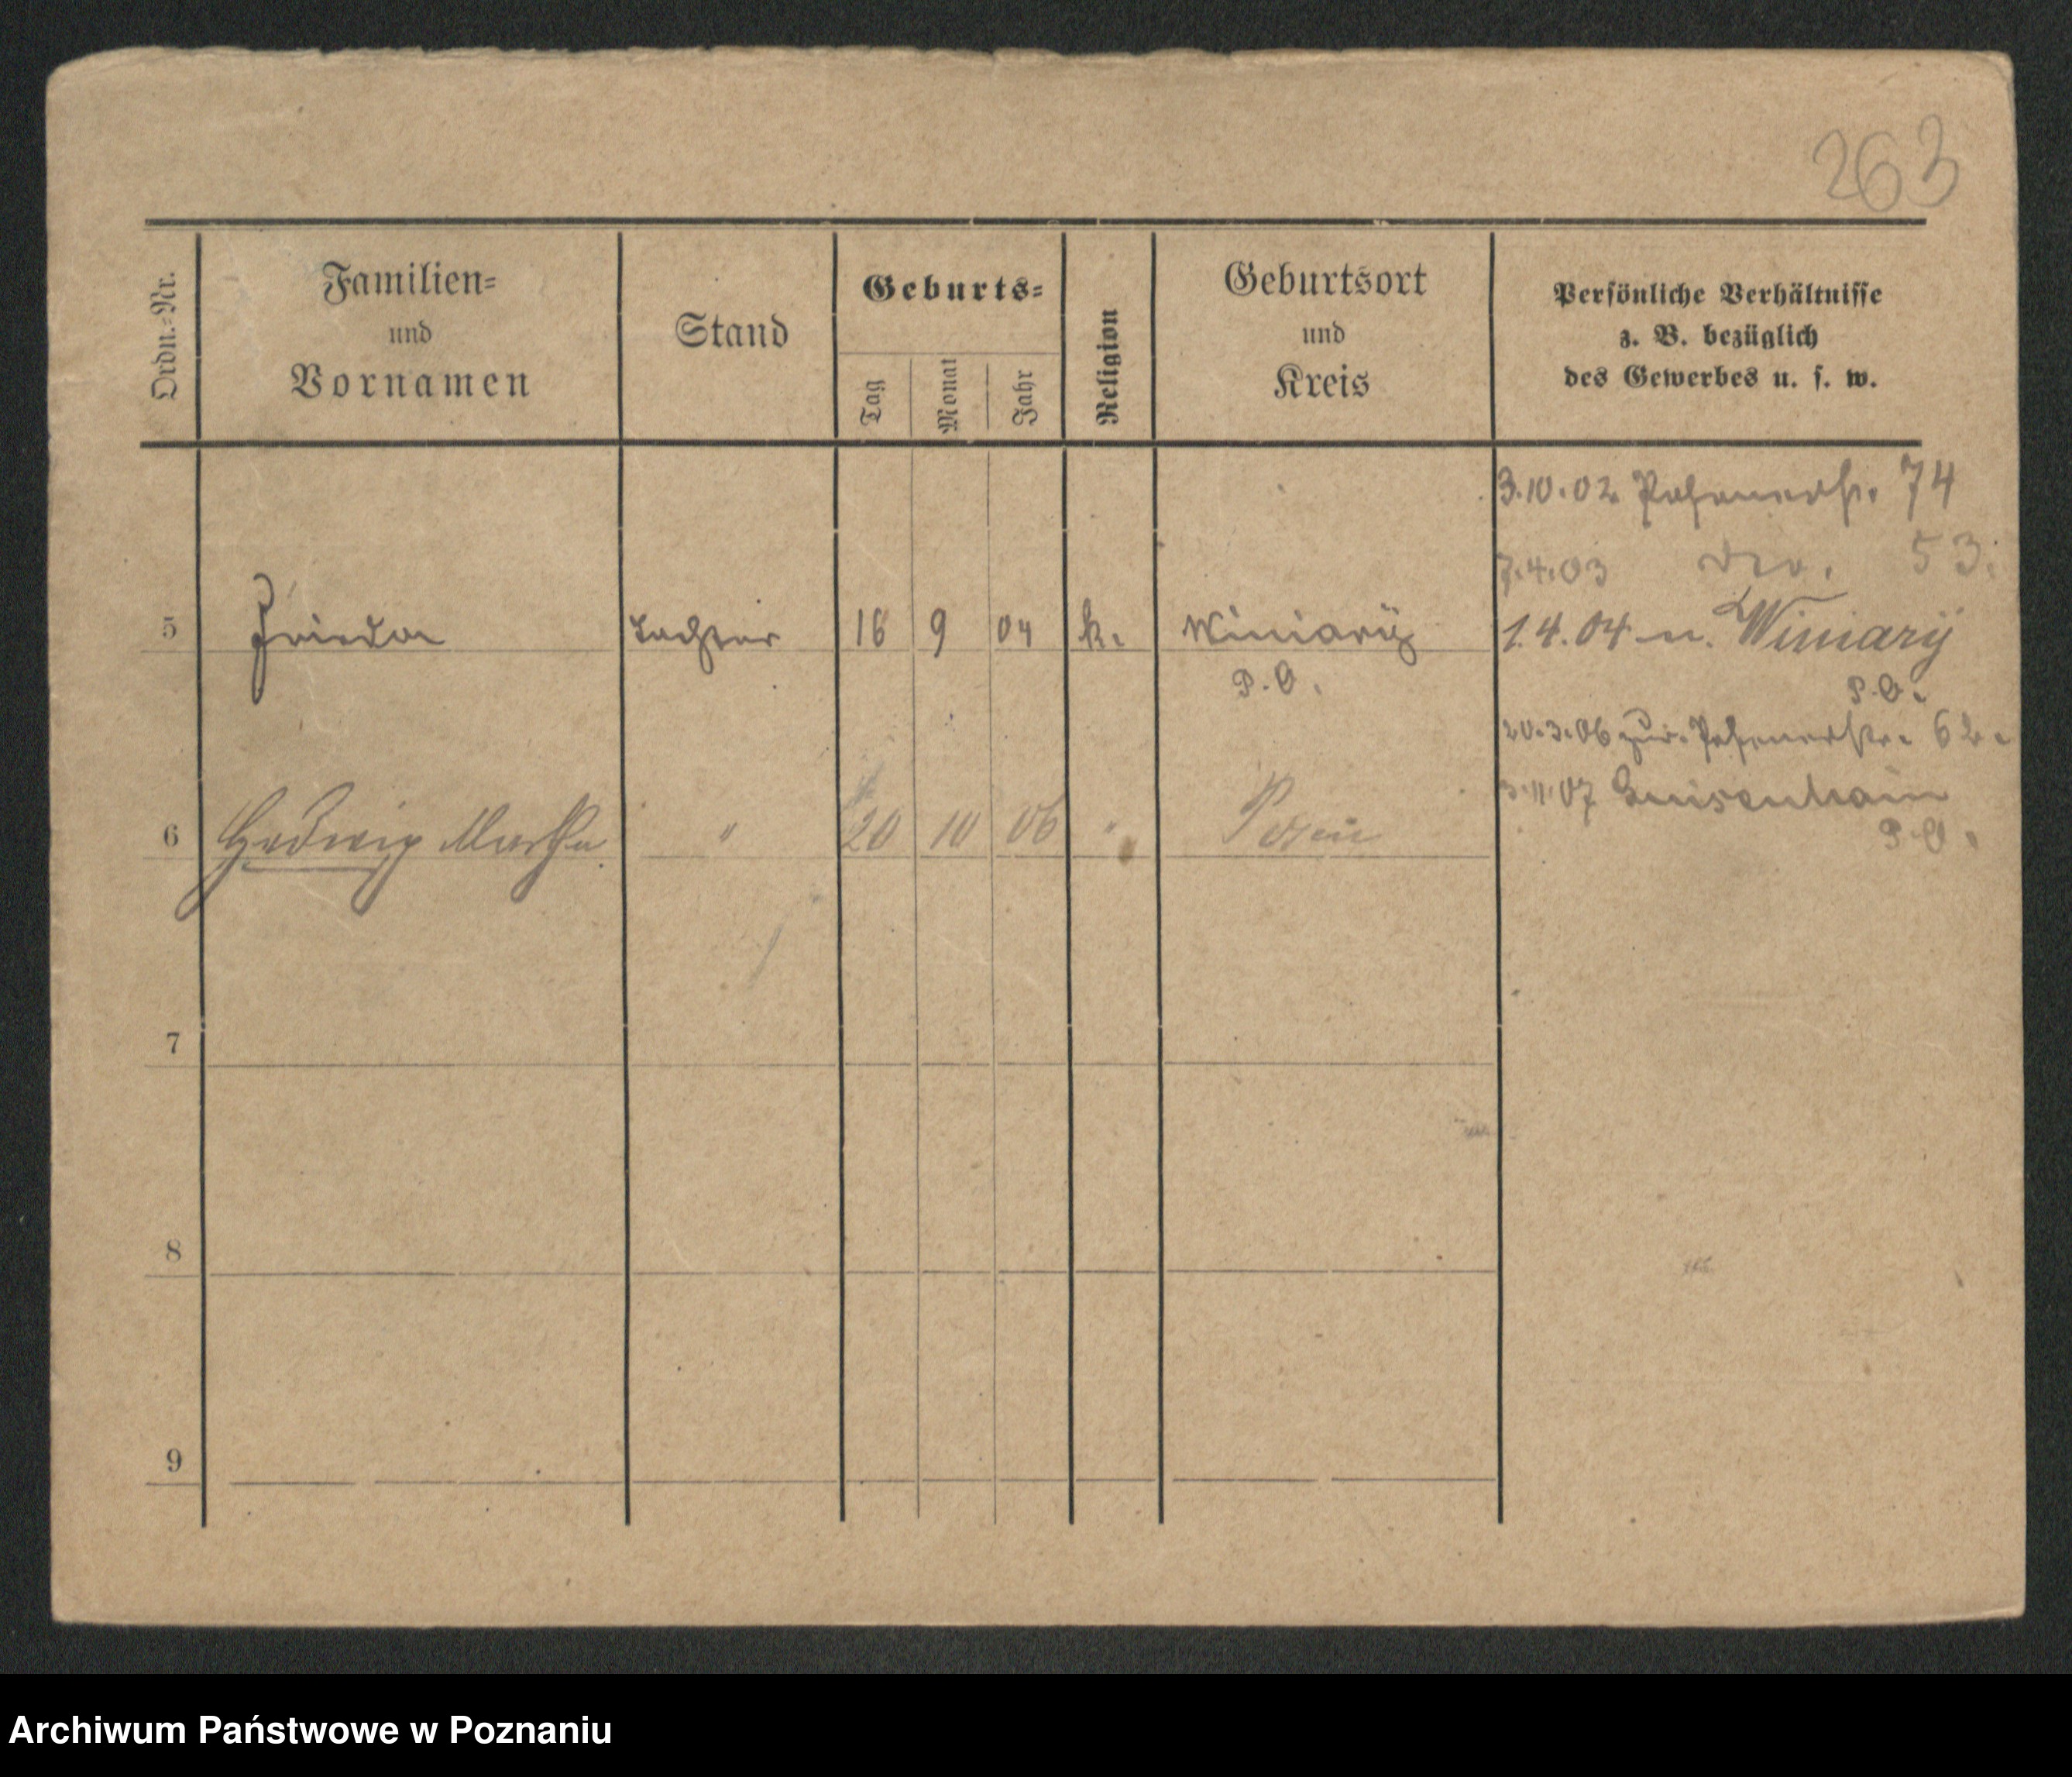 263
Ordn.-Nr.
Familien-
und
Vornamen
Stand
Geburts-
Tag
Monat
Jahr
Religion
Geburtsort
und
Kreis
Persönliche Verhältnisse
z. B. bezüglich
des Gewerbes u. s. w.
3.10.02 Posenerstr. 74
7.4.03 dto. 53.
5 Frieda Tochter 16 9 04 k. Winiary 1.4.04 n. Winiary
P. O. P. O.
20.3.06 zur. Posenerstr. 62.
11.07 Luisenhain
6 Hedwig Martha " 20 10 06 " Posen P. O.
7
8
9
Archiwum Państwowe w Poznaniu